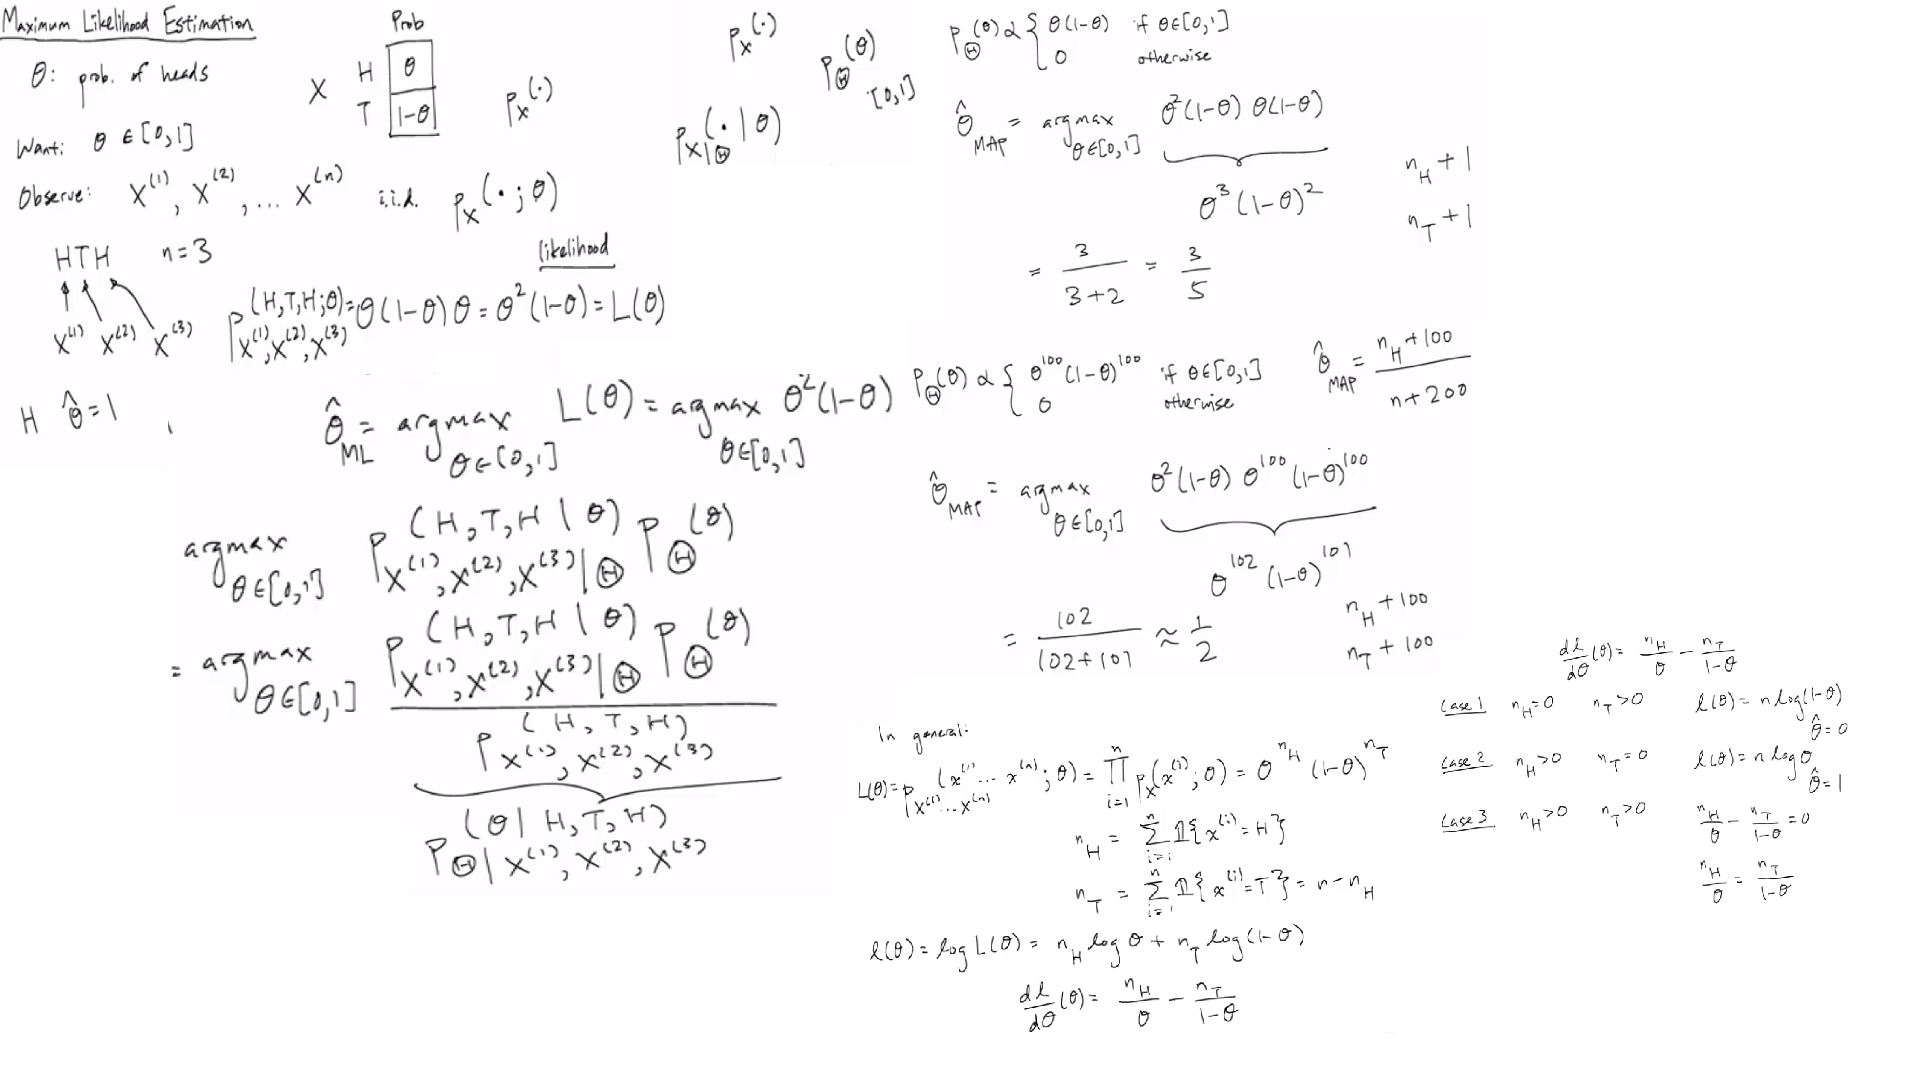 Maximum Likelihood Estimation
θ: prob. of heads
Want: θ ∈ [0,1]
Observe: X^(1), X^(2), ... X^(n) i.i.d. p_X(· ; θ)
Prob
X H θ
T 1-θ
p_X(·)
HTH n=3
X^(1) X^(2) X^(3)
likelihood
p_{X^(1),X^(2),X^(3)}(H,T,H;θ) = θ(1-θ)θ = θ²(1-θ) = L(θ)
H θ̂=1
θ̂_ML = argmax_{θ∈[0,1]} L(θ) = argmax_{θ∈[0,1]} θ²(1-θ)
argmax_{θ∈[0,1]} p_{X^(1),X^(2),X^(3)|Θ}(H,T,H | θ) p_Θ(θ)
= argmax_{θ∈[0,1]} p_{X^(1),X^(2),X^(3)|Θ}(H,T,H | θ) p_Θ(θ)
p_{X^(1),X^(2),X^(3)}(H,T,H)
p_{Θ|X^(1),X^(2),X^(3)}(θ | H,T,H)
p_X(·)
p_Θ(θ)
[0,1]
p_{X|Θ}(· | θ)
p_Θ(θ) ∝ { θ(1-θ) if θ∈[0,1]
0 otherwise
θ̂_MAP = argmax_{θ∈[0,1]} θ²(1-θ) θ(1-θ)
θ³(1-θ)²
n_H + 1
n_T + 1
= 3/(3+2) = 3/5
p_Θ(θ) ∝ { θ^100 (1-θ)^100 if θ∈[0,1]
0 otherwise
θ̂_MAP = (n_H + 100)/(n + 200)
θ̂_MAP = argmax_{θ∈[0,1]} θ²(1-θ) θ^100 (1-θ)^100
θ^102 (1-θ)^101
n_H + 100
n_T + 100
= 102/(102+101) ≈ 1/2
In general:
L(θ) = p_{X^(1)...X^(n)}(x^(1) ... x^(n) ; θ) = ∏_{i=1}^n p_X(x^(i) ; θ) = θ^{n_H} (1-θ)^{n_T}
n_H = Σ_{i=1}^n 𝟙{x^(i) = H}
n_T = Σ_{i=1}^n 𝟙{x^(i) = T} = n - n_H
ℓ(θ) = log L(θ) = n_H log θ + n_T log(1-θ)
dℓ/dθ (θ) = n_H/θ - n_T/(1-θ)
dℓ/dθ (θ) = n_H/θ - n_T/(1-θ)
Case 1 n_H=0 n_T>0 ℓ(θ) = n log(1-θ)
θ̂=0
Case 2 n_H>0 n_T=0 ℓ(θ) = n log θ
θ̂=1
Case 3 n_H>0 n_T>0 n_H/θ - n_T/(1-θ) = 0
n_H/θ = n_T/(1-θ)